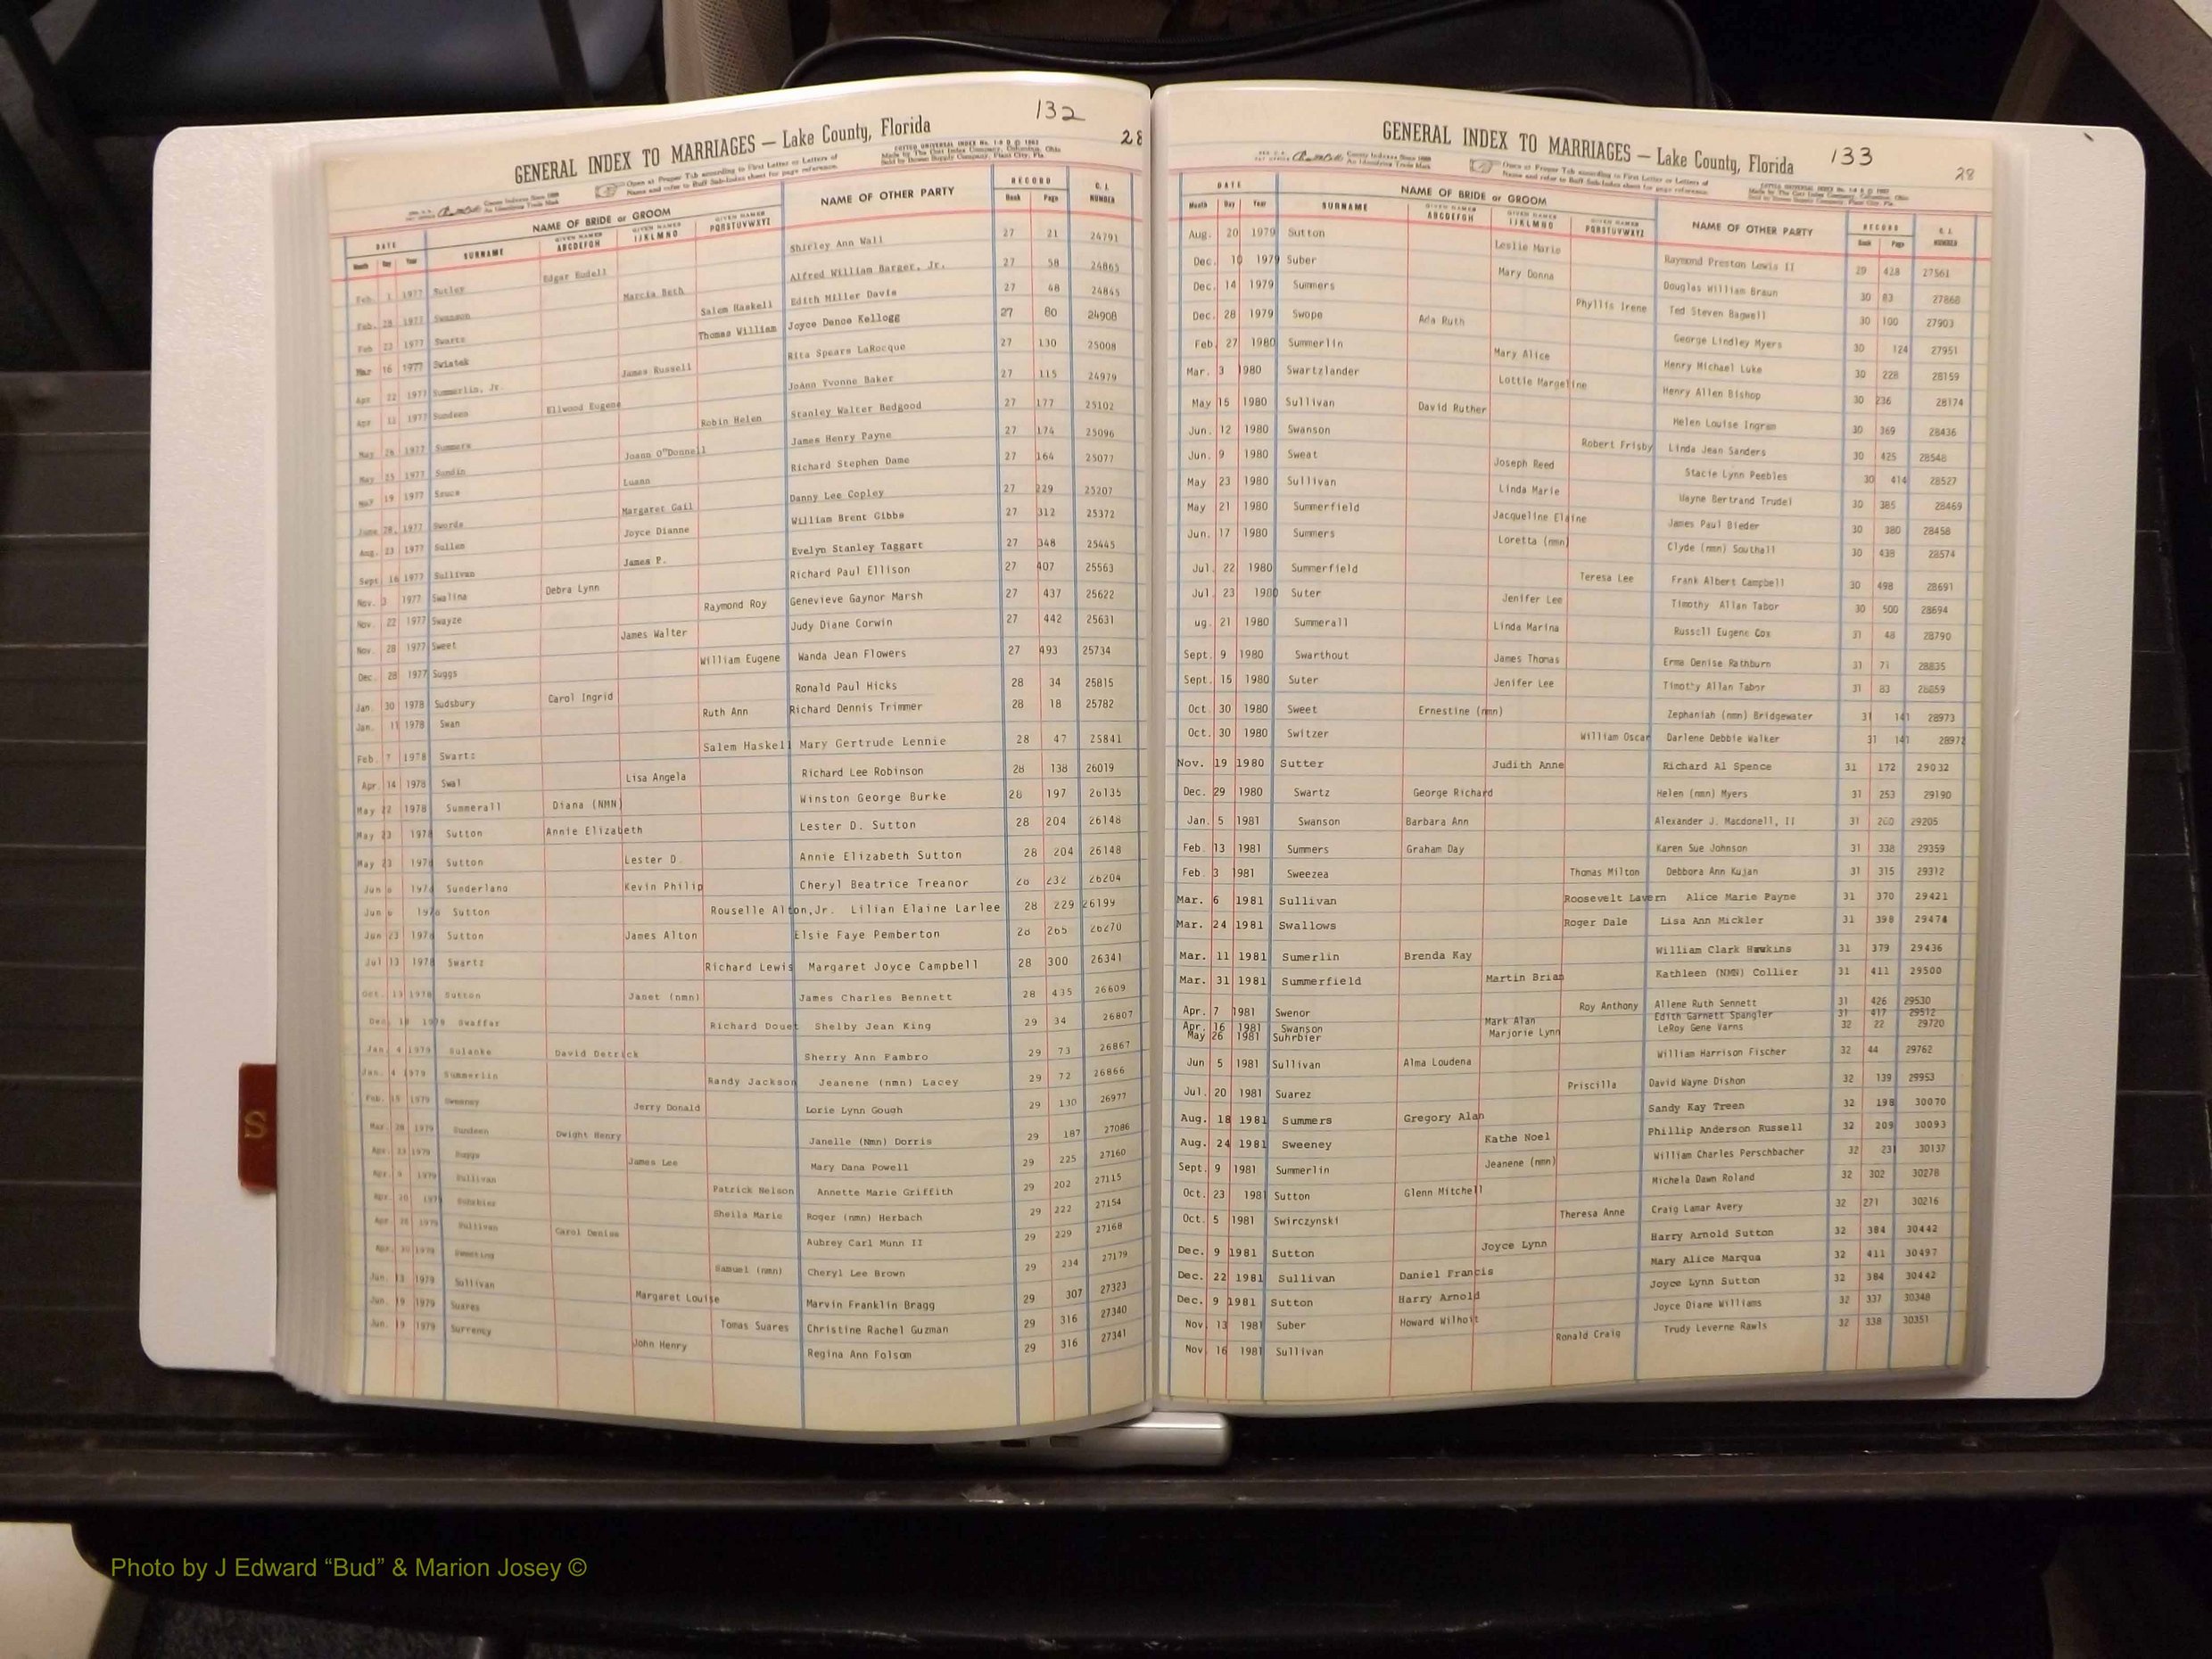 132
28
GENERAL INDEX TO MARRIAGES — Lake County, Florida
Open at Proper Tab according to First Letter or Letters of
Name and refer to Buff Sub-Index sheet for page reference.
DATE NAME OF BRIDE or GROOM NAME OF OTHER PARTY RECORD G. I. NUMBER
Month Day Year SURNAME GIVEN NAMES ABCDEFGH GIVEN NAMES IJKLMNO GIVEN NAMES PQRSTUVWXYZ Book Page
Feb. 1 1977 Sutley Edgar Eudell Shirley Ann Wall 27 21 24791
Feb. 28 1977 Swanson Marcia Beth Alfred William Barger, Jr. 27 58 24865
Feb 23 1977 Swartz Salem Haskell Edith Miller Davie 27 48 24845
Mar 16 1977 Swiatek Thomas William Joyce Dence Kellogg 27 80 24908
Apr 22 1977 Summerlin, Jr. James Russell Rita Spears LaRocque 27 130 25008
Apr 11 1977 Sundeen Ellwood Eugene JoAnn Yvonne Baker 27 115 24979
May 26 1977 Summers Robin Helen Stanley Walter Bedgood 27 177 25102
May 25 1977 Sundin Joann O"Donnell James Henry Payne 27 174 25096
May 19 1977 Szucs Luann Richard Stephen Dame 27 164 25077
June 28, 1977 Swords Margaret Gail Danny Lee Copley 27 229 25207
Aug. 23 1977 Sullen Joyce Dianne William Brent Gibbs 27 312 25372
Sept. 16 1977 Sullivan James P. Evelyn Stanley Taggart 27 348 25445
Nov. 3 1977 Swalina Debra Lynn Richard Paul Ellison 27 407 25563
Nov. 22 1977 Swayze Raymond Roy Genevieve Gaynor Marsh 27 437 25622
Nov. 28 1977 Sweet James Walter Judy Diane Corwin 27 442 25631
Dec. 28 1977 Suggs William Eugene Wanda Jean Flowers 27 493 25734
Jan. 30 1978 Sudsbury Carol Ingrid Ronald Paul Hicks 28 34 25815
Jan. 11 1978 Swan Ruth Ann Richard Dennis Trimmer 28 18 25782
Feb. 7 1978 Swartz Salem Haskell Mary Gertrude Lennie 28 47 25841
Apr. 14 1978 Swal Lisa Angela Richard Lee Robinson 28 138 26019
May 22 1978 Summerall Diana (NMN) Winston George Burke 28 197 26135
May 23 1978 Sutton Annie Elizabeth Lester D. Sutton 28 204 26148
May 23 1978 Sutton Lester D. Annie Elizabeth Sutton 28 204 26148
Jun 1978 Sunderland Kevin Philip Cheryl Beatrice Treanor 28 232 26204
Jun 1978 Sutton Rouselle Alton,Jr. Lilian Elaine Larlee 28 229 26199
Jun 23 1978 Sutton James Alton Elsie Faye Pemberton 28 265 26270
Jul 13 1978 Swartz Richard Lewis Margaret Joyce Campbell 28 300 26341
Oct. 13 1978 Sutton Janet (nmn) James Charles Bennett 28 435 26609
Dec. 18 1978 Swaffar Richard Douet Shelby Jean King 29 34 26807
Jan. 4 1979 Sulanke David Detrick Sherry Ann Fambro 29 73 26867
Jan. 4 1979 Summerlin Randy Jackson Jeanene (nmn) Lacey 29 72 26866
Feb. 15 1979 Sweeney Jerry Donald Lorie Lynn Gough 29 130 26977
Mar. 28 1979 Sundeen Dwight Henry Janelle (Nmn) Dorris 29 187 27086
Apr. 23 1979 Suggs James Lee Mary Dana Powell 29 225 27160
Apr. 9 1979 Sullivan Patrick Nelson Annette Marie Griffith 29 202 27115
Apr. 20 1979 Sheila Marie Roger (nmn) Herbach 29 222 27154
Apr. 1979 Sullivan Carol Denise Aubrey Carl Munn II 29 229 27168
Apr. 30 1979 Sweeting Samuel (nmn) Cheryl Lee Brown 29 234 27179
Jun. 13 1979 Sullivan Margaret Louise Marvin Franklin Bragg 29 307 27323
Jun. 19 1979 Suares Tomas Suares Christine Rachel Guzman 29 316 27340
Jun. 19 1979 Surrency John Henry Regina Ann Folsom 29 316 27341
133
28
GENERAL INDEX TO MARRIAGES — Lake County, Florida
Open at Proper Tab according to First Letter or Letters of
Name and refer to Buff Sub-Index sheet for page reference.
DATE NAME OF BRIDE or GROOM NAME OF OTHER PARTY RECORD G. I. NUMBER
Month Day Year SURNAME GIVEN NAMES ABCDEFGH GIVEN NAMES IJKLMNO GIVEN NAMES PQRSTUVWXYZ Book Page
Aug. 20 1979 Sutton Leslie Marie Raymond Preston Lewis II 29 428 27561
Dec. 10 1979 Suber Mary Donna Douglas William Braun 30 83 27868
Dec. 14 1979 Summers Phyllis Irene Ted Steven Bagwell 30 100 27903
Dec. 28 1979 Swope Ada Ruth George Lindley Myers 30 124 27951
Feb. 27 1980 Summerlin Mary Alice Henry Michael Luke 30 228 28159
Mar. 3 1980 Swartzlander Lottie Margeline Henry Allen Bishop 30 236 28174
May 15 1980 Sullivan David Ruther Helen Louise Ingram 30 369 28436
Jun. 12 1980 Swanson Robert Frisby Linda Jean Sanders 30 425 28548
Jun. 9 1980 Sweat Joseph Reed Stacie Lynn Peebles 30 414 28527
May 23 1980 Sullivan Linda Marie Wayne Bertrand Trudel 30 385 28469
May 21 1980 Summerfield Jacqueline Elaine James Paul Bieder 30 380 28458
Jun. 17 1980 Summers Loretta (nmn) Clyde (nmn) Southall 30 438 28574
Jul. 22 1980 Summerfield Teresa Lee Frank Albert Campbell 30 498 28691
Jul. 23 1980 Suter Jenifer Lee Timothy Allan Tabor 30 500 28694
ug. 21 1980 Summerall Linda Marina Russell Eugene Cox 31 48 28790
Sept. 9 1980 Swarthout James Thomas Erma Denise Rathburn 31 71 28835
Sept. 15 1980 Suter Jenifer Lee Timothy Allan Tabor 31 83 28859
Oct. 30 1980 Sweet Ernestine (nmn) Zephaniah (nmn) Bridgewater 31 141 28973
Oct. 30 1980 Switzer William Oscar Darlene Debbie Walker 31 141 28972
Nov. 19 1980 Sutter Judith Anne Richard Al Spence 31 172 29032
Dec. 29 1980 Swartz George Richard Helen (nmn) Myers 31 253 29190
Jan. 5 1981 Swanson Barbara Ann Alexander J. Macdonell, II 31 260 29205
Feb. 13 1981 Summers Graham Day Karen Sue Johnson 31 338 29359
Feb. 3 1981 Sweezea Thomas Milton Debbora Ann Kujan 31 315 29312
Mar. 6 1981 Sullivan Roosevelt Lavern Alice Marie Payne 31 370 29421
Mar. 24 1981 Swallows Roger Dale Lisa Ann Mickler 31 398 29474
Mar. 11 1981 Sumerlin Brenda Kay William Clark Hawkins 31 379 29436
Mar. 31 1981 Summerfield Martin Brian Kathleen (NMN) Collier 31 411 29500
Apr. 7 1981 Swenor Roy Anthony Allene Ruth Sennett 31 426 29530
Apr. 16 1981 Swanson Mark Alan Edith Garnett Spangler 31 417 29512
May 26 1981 Suhrbier Marjorie Lynn LeRoy Gene Varns 32 22 29720
Jun 5 1981 Sullivan Alma Loudena William Harrison Fischer 32 44 29762
Jul. 20 1981 Suarez Priscilla David Wayne Dishon 32 139 29953
Aug. 18 1981 Summers Gregory Alan Sandy Kay Treen 32 198 30070
Aug. 24 1981 Sweeney Kathe Noel Phillip Anderson Russell 32 209 30093
Sept. 9 1981 Summerlin Jeanene (nmn) William Charles Perschbacher 32 231 30137
Oct. 23 1981 Sutton Glenn Mitchell Michela Dawn Roland 32 302 30278
Oct. 5 1981 Swirczynski Theresa Anne Craig Lamar Avery 32 271 30216
Dec. 9 1981 Sutton Joyce Lynn Harry Arnold Sutton 32 384 30442
Dec. 22 1981 Sullivan Daniel Francis Mary Alice Marqua 32 411 30497
Dec. 9 1981 Sutton Harry Arnold Joyce Lynn Sutton 32 384 30442
Nov. 13 1981 Suber Howard Wilhoit Joyce Diane Williams 32 337 30348
Nov 16 1981 Sullivan Ronald Craig Trudy Leverne Rawls 32 338 30351
S
Photo by J Edward “Bud” & Marion Josey ©